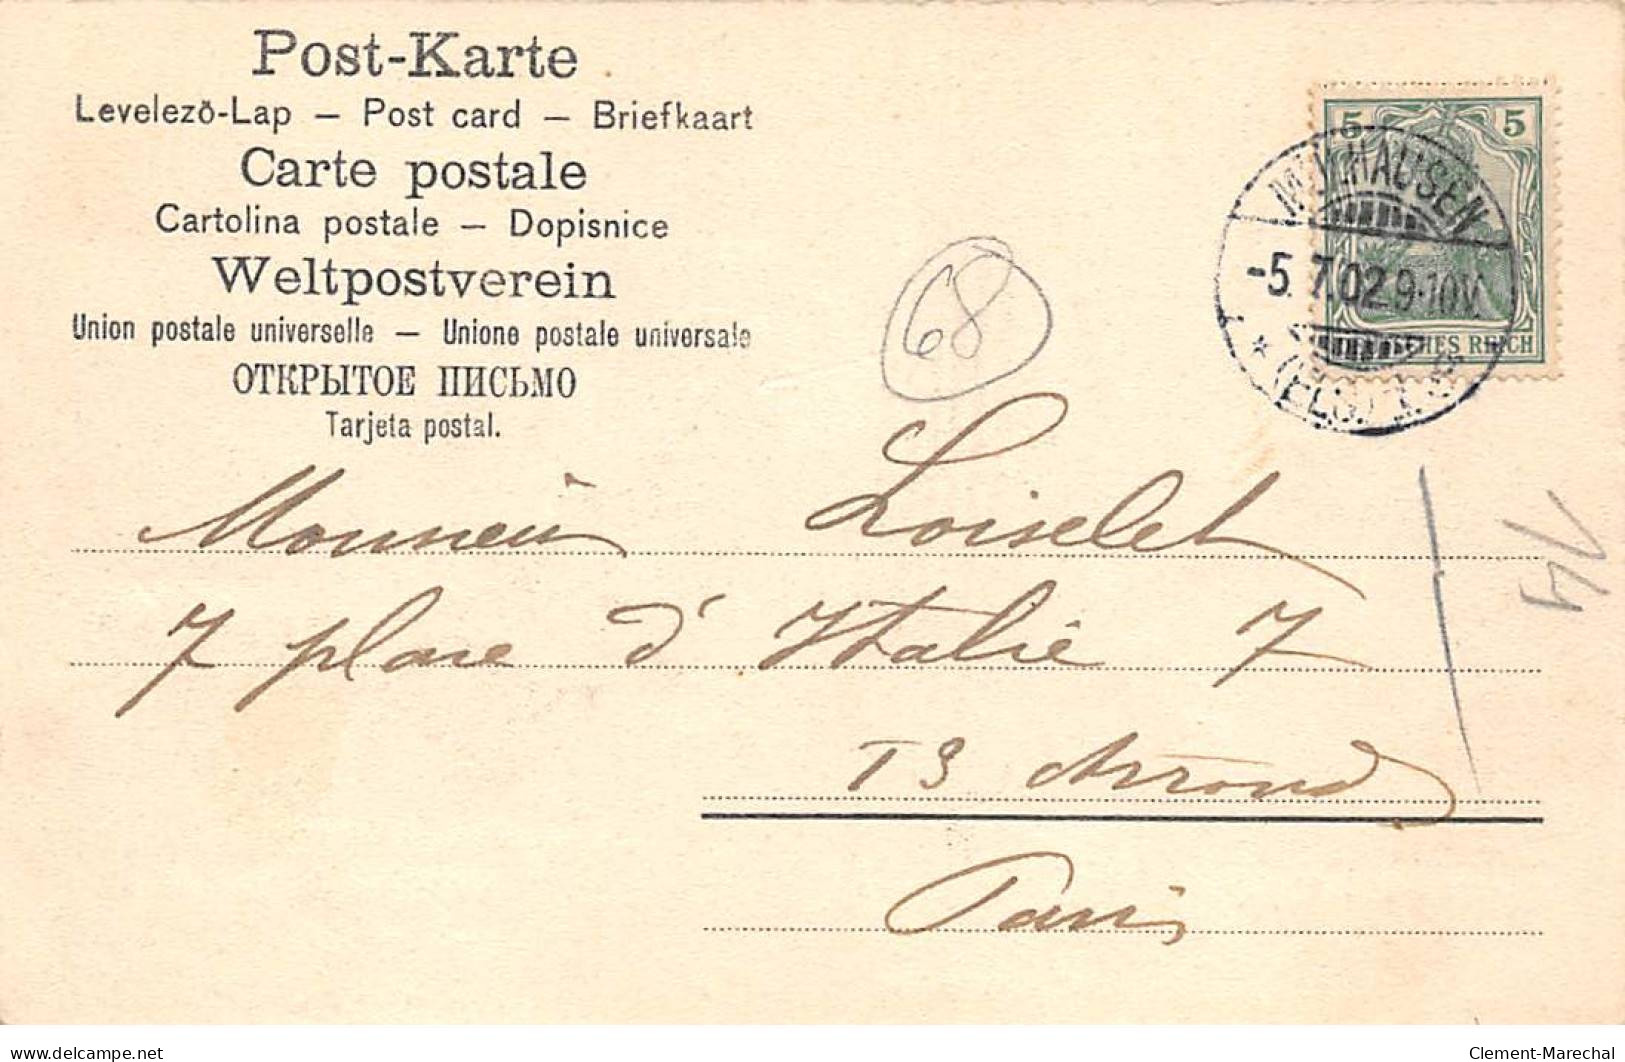 Post-Karte
Levelező-Lap – Post card – Briefkaart
Carte postale
Cartolina postale – Dopisnice
Weltpostverein
Union postale universelle – Unione postale universale
ОТКРЫТОЕ ПИСЬМО
Tarjeta postal.
5 5
MÜLHAUSEN
-5.7.02.9-10V.
* (ELS.) 1.
SCHES REICH
68
74
Monsieur Loiselet
7 place d'Italie 7
13 Arrond
Paris
www.delcampe.net
Clement-Marechal